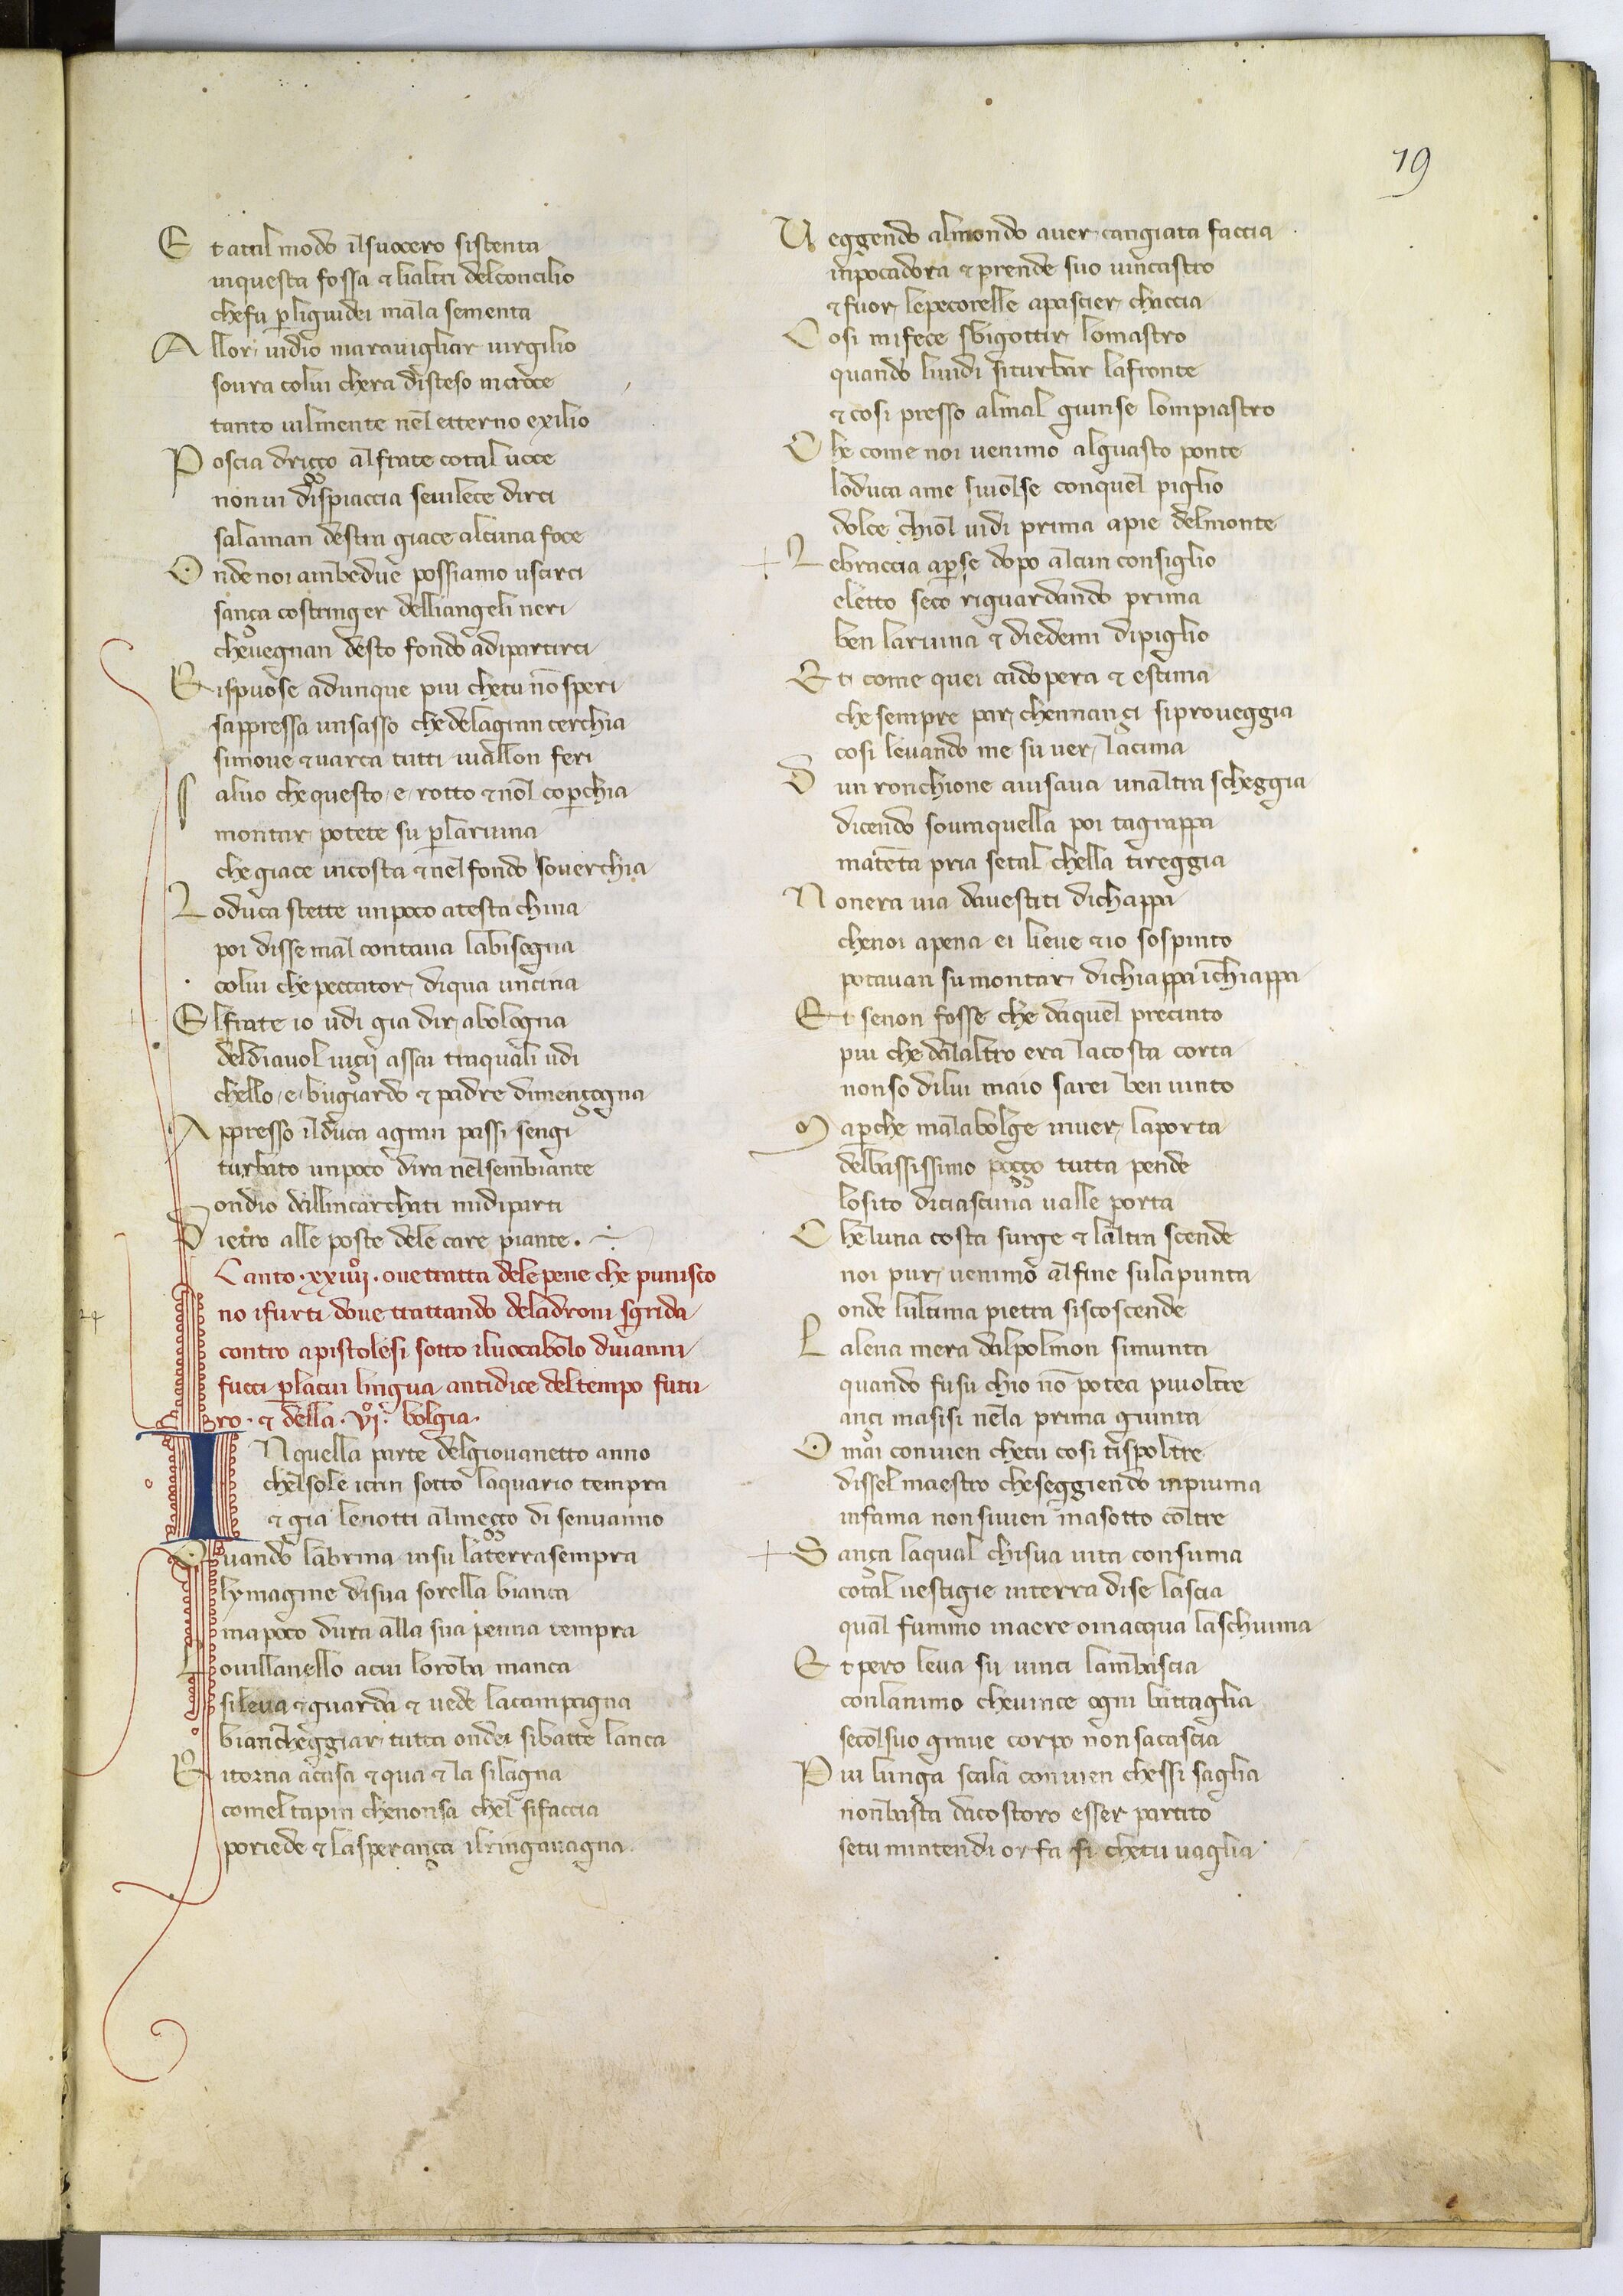 19
Et atal modo il suocero sistenta
inquesta fossa & lialtri delconcilio
chefu ꝑ ligiudei mala sementa
Allor vidio maravigliar virgilio
sovra colui chera disteso incroce
tanto vilmente nel etterno exilio
Poscia driçço al frate cotal voce
non vi dispiaccia sevilece dirci
salaman destra giace alcuna foce
Onde noi ambedue possiamo uscirci
sança costringer delliangeli neri
chevegnan desto fondo adipartirci
Rispuose adunque piu chetu nō speri
sappressa unsasso che delagran cerchia
simove & varca tutti ivallon feri
Salvo che questo e rotto & nol coꝑchia
montar potete su ꝑ laruina
che giace incosta & nel fondo soverchia
Loduca stette unpoco atesta china
poi disse mal contava labisogna
colui che peccator diqua uncina
Elfrate io udi gia dir abologna
deldiavol viçii assai traquali udi
chello e bugiardo & padre dimençogna
Appresso ilduca agran passi sengi
turbato unpoco dira nel sembiante
ondio dallincarchati midiparti
Dietro alle poste dele care piante.
Canto .xxiiii. ove tratta dele pene che punisco
no ifurti dove trattando deladroni sgrida
contro apistolesi sotto iluocabolo divanni
fucci ꝑ lacui lingua antidice deltempo futu
24
ro . & della .vij. bolgia.
INquella parte delgiovanetto anno
chelsole icrin sotto laquario tempra
& gia lenotti almeççο di senvanno
Quando labrina insu laterrasempra
lymagine disua sorella bianca
mapoco dura alla sua penna tempra
Lovillanello acui laroba manca
sileva & guarda & vede lacampagna
biancheggiar tutta ondei sibatte lanca
Ritorna acasa & qua & la silagna
comel tapin chenonsa chel sifaccia
poriede & lasperança ilringavagna
Veggendo almondo aver cangiata faccia
inpocadora & prende suo vincastro
& fuor lepecorelle apascier chaccia
Cosi mifece sbigottir lomastro
quando lividi siturbar lafronte
& cosi presso almal giunse lompiastro
Che come noi venimo alguasto ponte
loduca ame sivolse conquel piglio
dolce chiol vidi prima apie delmonte
Lebraccia aꝑse dopo alcun consiglio
eletto seco riguardando prima
ben laruina & diedemi dipiglio
Et come quei cadopera & estima
che sempre par chennançi siproveggia
cosi levando me su ver lacima
Dun ronchione avisava unaltra scheggia
dicendo sovraquella poi tagrappa
matenta pria setal chella tireggia
Nonera via davestiti dichappa
chenoi apena ei lieve & io sospinto
potavan sumontar dichiappa īchiappa
Et senon fosse che daquel precinto
piu che dalaltro era lacosta corta
nonso dilui maio sarei ben vinto
Maꝑche malabolge inver laporta
delbassissimo poçço tutta pende
losito diciascuna valle porta
Cheluna costa surge & laltra scende
noi pur venimo alfine sulapunta
onde lultima pietra siscoscende
Lalena mera dalpolmon simunta
quando fusu chio nō potea piuoltre
ançi masisi nela prima giunta
Omai convien chetu cosi tispoltre
dissel maestro cheseggiendo inpiuma
infama nonsivien nasotto coltre
Sança laqual chisua vita consuma
cotal vestigie interra dise lascia
qual fummo inaere o inacqua laschiuma
Et pero leva su vinci lambascia
conlanimo chevince ogni battaglia
secolsuo grave corpo nonsacascia
Piu lunga scala convien chessi saglia
nonbasta dacostoro esser partito
setu mintendi or fa si chetu vaglia